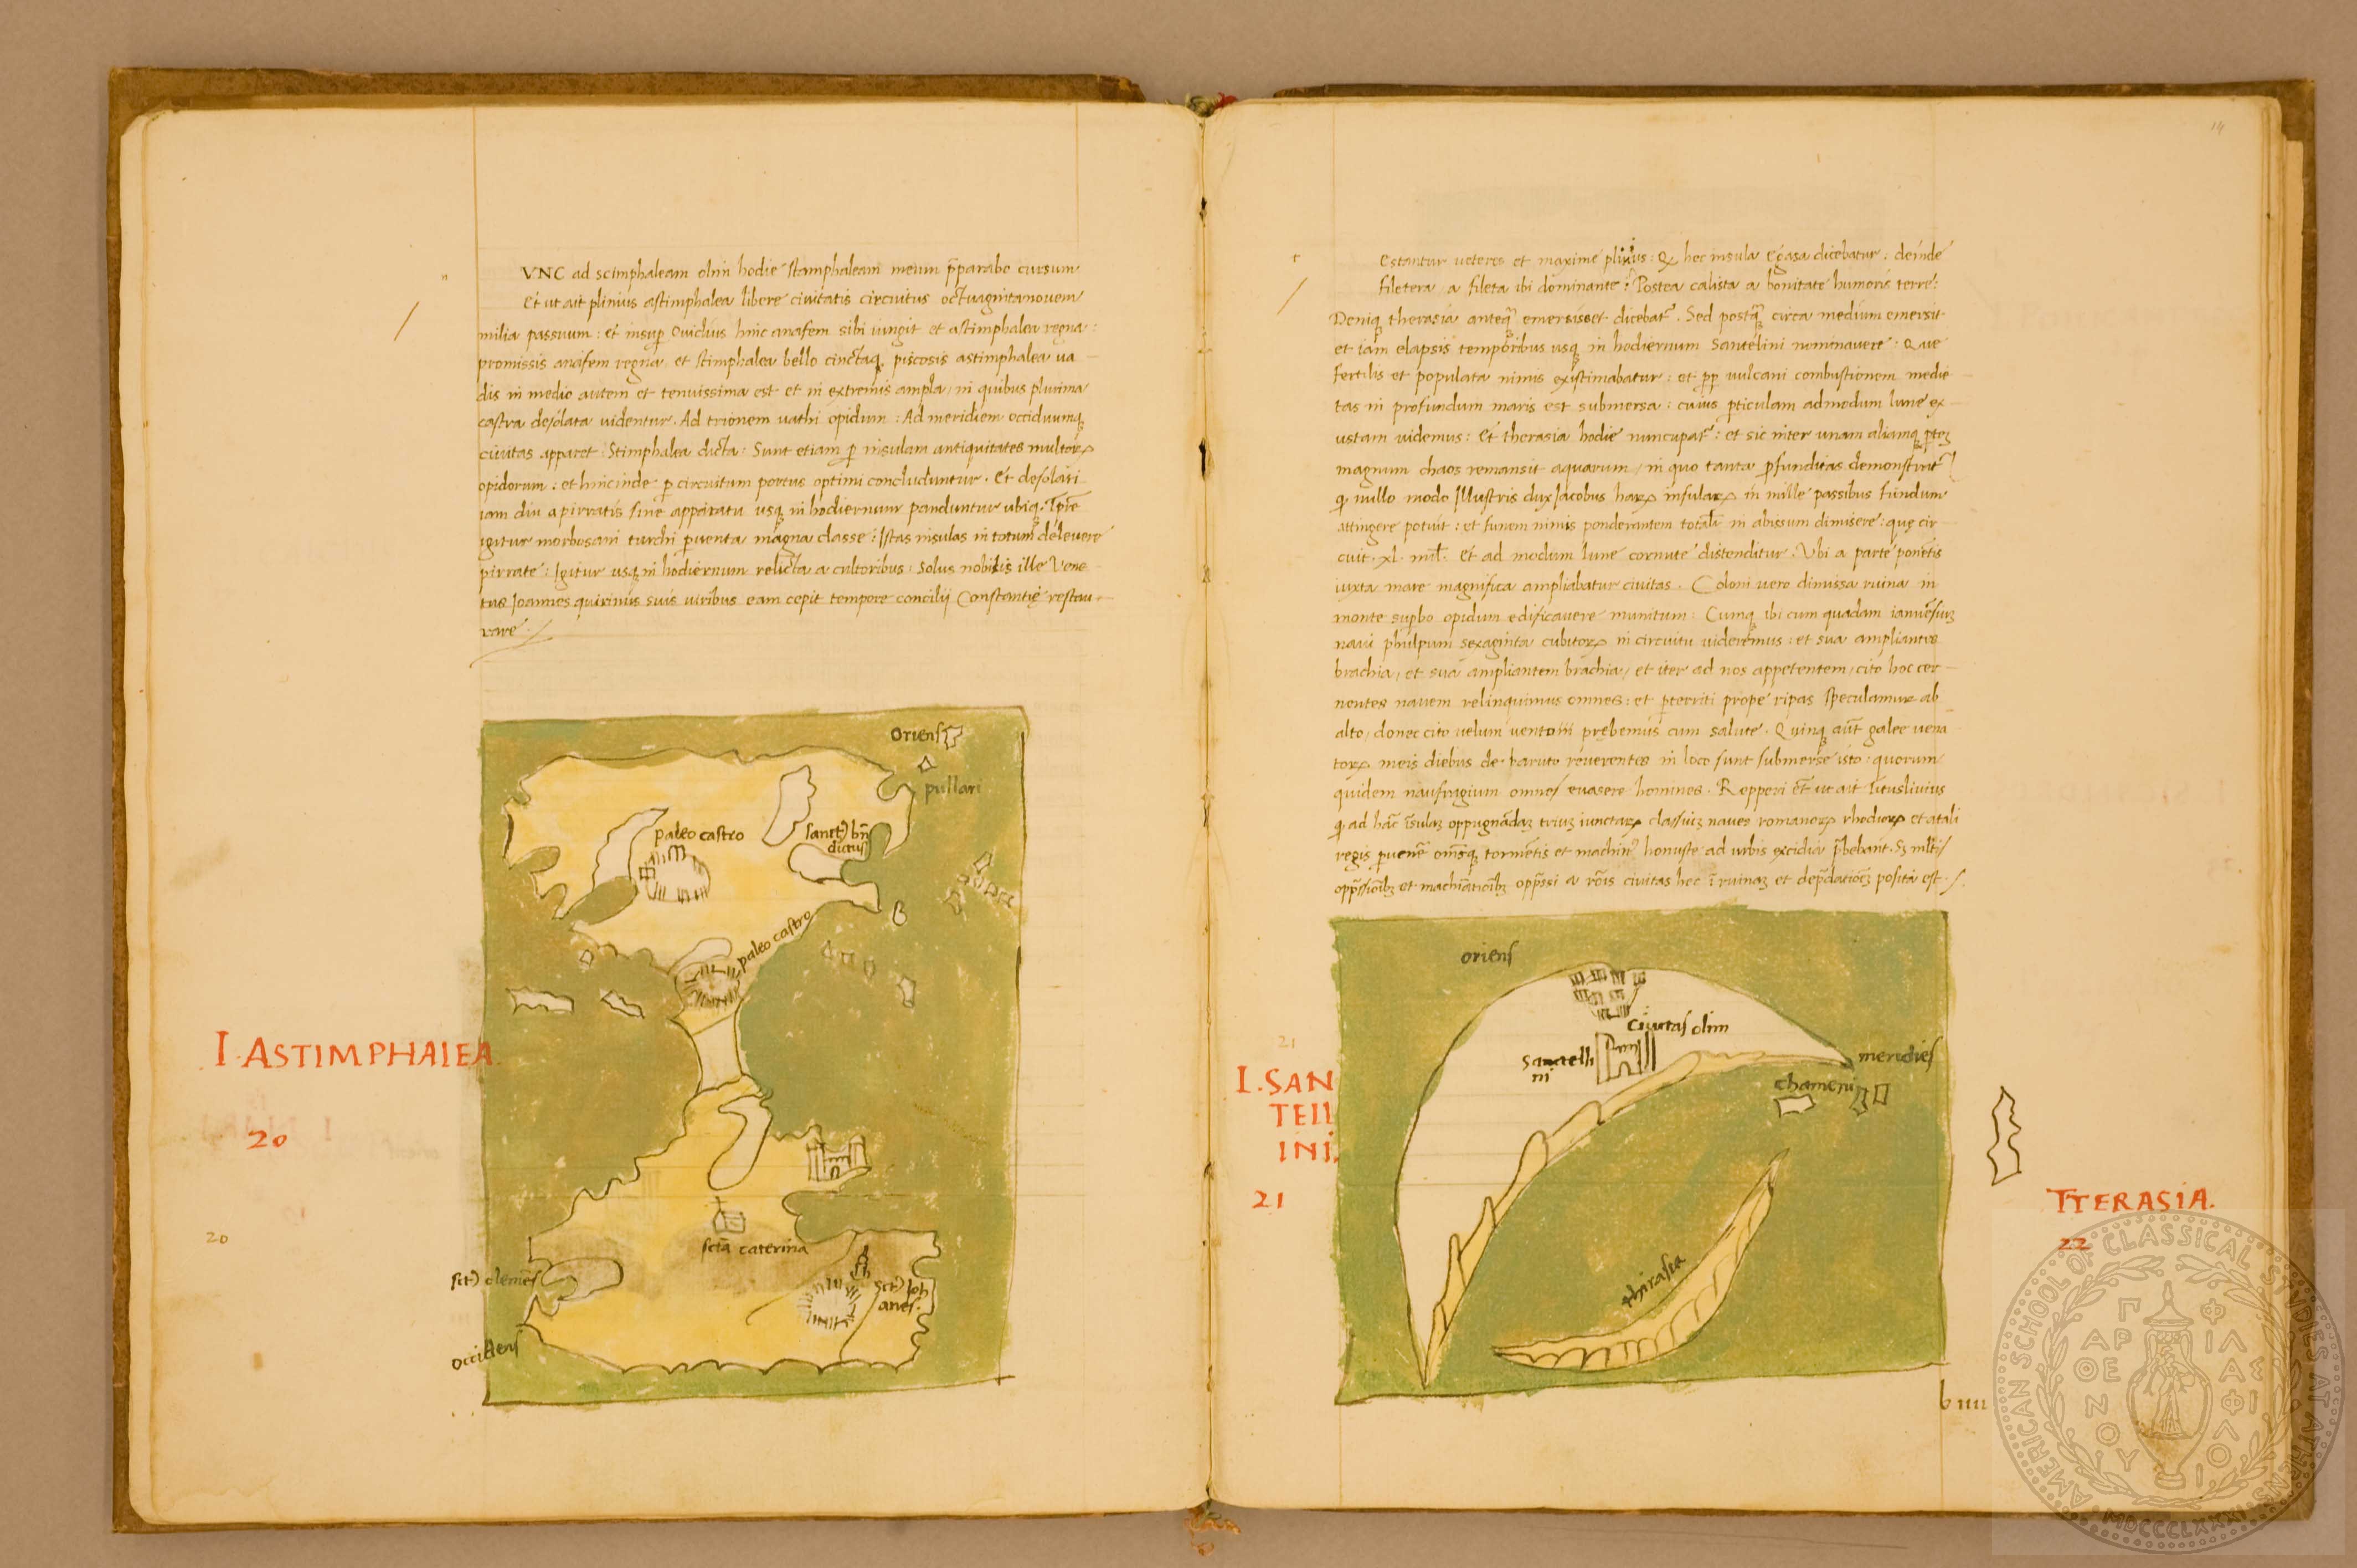 VNC ad scimphaleam olim hodie stamphaleam meum p̄parabo cursum
Et ut ait plinius astimphalea libere ciuitatis circuitus octuagintanouem
milia passuum : et insuꝑ Ouidius hinc anafem sibi iungit et astimphalea regna :
promissis anafem regna et stimphalea bello cinctaq piscosis astimphalea ua
dis in medio autem et tenuissima est et in extremis ampla / in quibus plurima
castra desolata uidentur . Ad trionem uathi opidum : Ad meridiem occiduumq
ciuitas apparet : Stimphalea dicta : Sunt etiam ꝑ insulam antiquitates multoꝝ
opidorum : et hincinde ꝑ circuitum portus optimi concluduntur . Et desolati
iam diu a pirratis sine apparatu usq in hodiernum panduntur ubiq
igitur morbosani turchi ꝑuenta magna classe : Istas insulas in totum deleuere
pirrate : Igitur usq in hodiernum relicta a cultoribus : Solus nobilis ille Vene
tus Joannes quirinus suis uiribus eam cepit tempore concilii Constantię restau
rare .
oriens
pullari
paleo castro
sanctꝰ bn̄
dictus
paleo castro
I. ASTIMPHALEA.
20
scta caterina
20
sctꝰ clemēs
sctꝰ Joh
anes.
occidens
14
Estantur ueteres et maxime plinius : Q hec insula Egasa dicebatur : deinde
filetera a fileta ibi dominante : Postea calista a bonitate humoris terre :
Deniq therasia anteqȝ emersisset dicebatr . Sed postqȝ circa medium emersit
et iam elapsis temporibus usq in hodiernum Santelini nominauere : Que
fertilis et populata nimis existimabatur : et ꝓp uulcani combustionem medie
tas in profundum maris est submersa : cuius ꝑticulam admodum lune ex
ustam uidemus : Et therasia hodie nuncupatr : et sic inter unam aliamqȝ ꝑteȝ
magnum chaos remansit aquarum / in quo tanta ꝓfunditas demonstratr
q nullo modo Illustris dux Jacobus haꝝ insulaꝝ in mille passibus fundum
attingere potuit : et funem nimis ponderantem in abissum dimisere : quę cir
cuit . xl . mil̄ . Et ad modum lune cornute distenditur . Vbi a parte ponētis
iuxta mare magnifica ampliabatur ciuitas . Coloni uero dimissa ruina in
monte suꝑbo opidum edificauere munitum : Cumq ibi cum quadam ianuēsiuȝ
naui phulpum sexaginta cubitoꝝ in circuitu uideremus : et sua ampliantes
brachia , et sua ampliantem brachia , et iter ad nos appetentem , cito hoc cer
nentes nauem relinquimus omnes : et ꝑterriti prope ripas speculamur ab
alto , donec cito uelum uentorum prębemus cum salute . Quinq aūt galee uene
toꝝ meis diebus de baruto reuerentes in loco sunt submerse isto : quorum
quidem naufragium omnes euasere homines . Repperi et̄ ut ait tituslivius
q ad hāc īsulaȝ oppugnādaȝ triuȝ iunctaꝝ classiuȝ naues romanoꝝ rhodioꝝ et atali
regis ꝑuenē omīsq tormētis et machinis honuste ad urbis excidia p̄bebant . Sȝ
opp̄ssiōibȝ et machīatiōibȝ opp̄ssi a rōis ciuitas hec ī ruinaȝ et dep̄datiōeȝ posita est .
oriens
ciuitas olim
santelli
ni
meridies
chameni
21
I. SAN
TELL
INI.
21
thirasia
TTERASIA.
22
b iiii
AMERICAN SCHOOL OF CLASSICAL STUDIES AT ATHENS
MDCCCLXXXI
ΠΑΡΘΕΝΟΥ
ΦΙΛΑΣ ΦΙΛΟΙ